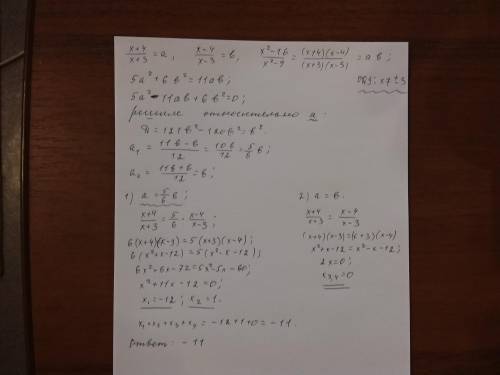 (x+4)/(x+3) = a, (x-4)/(x-3) = b, (x²-16)/(x²-9) = (x+4)(x-4)/(x+3)(x-3) = ab;
5a² + 6b² = 11ab;
ОДЗ: x≠±3
5a² - 11ab + 6b² = 0;
решаем относительно a:
D = 121b² - 120b² = b².
a₁ = (11b-b)/12 = 10b/12 = 5/6 b;
a₂ = (11b+b)/12 = b;
1) a = 5/6 b;
(x+4)/(x+3) = 5/6 · (x-4)/(x-3);
6(x+4)(x-3) = 5(x+3)(x-4);
6(x²+x-12) = 5(x²-x-12);
6x²+6x-72 = 5x²-5x-60;
x²+11x-12=0;
x₁=-12; x₂=1.
2) a = b.
(x+4)/(x+3) = (x-4)/(x-3)
(x+4)(x-3)=(x+3)(x-4)
x²+x-12=x²-x-12;
2x=0;
x₃,₄=0
x₁+x₂+x₃+x₄ = -12+1+0 = -11.
Ответ: -11